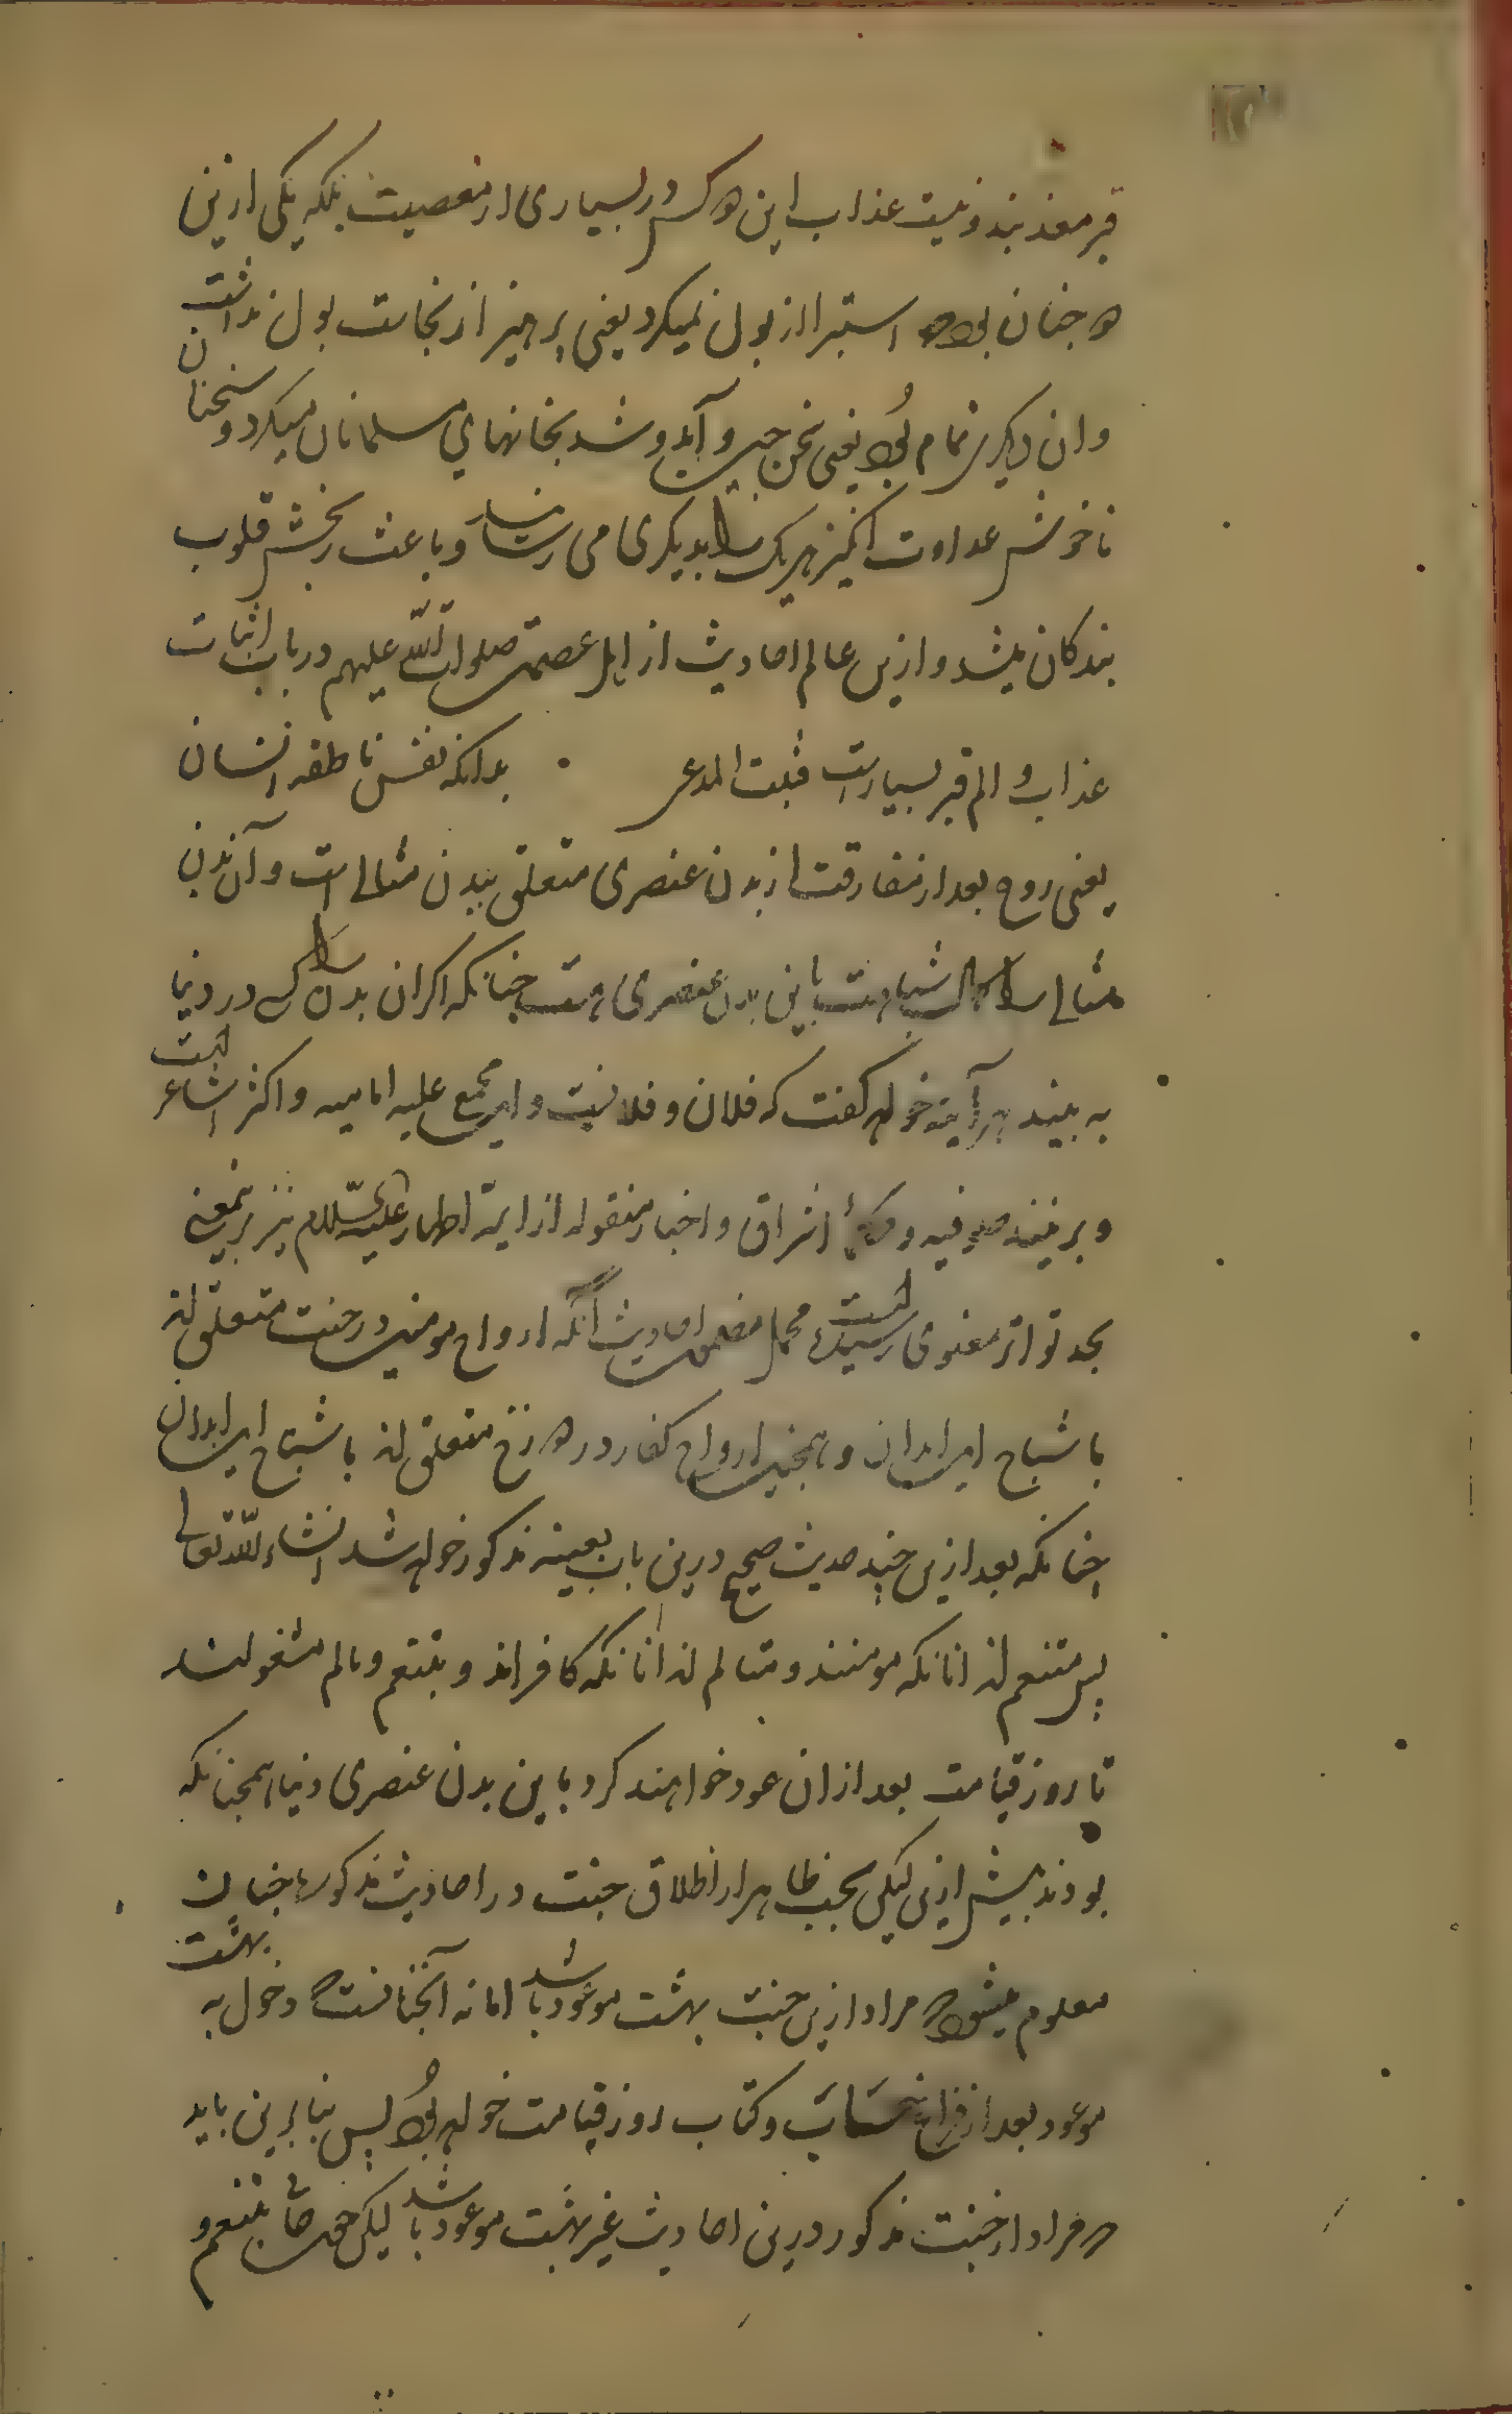 قبر معذبند و نیست عذاب این دو کس در بسیاری از معصیت بلکه یکی ازین
دو چنان بود که استبرا از بول نمیکرد یعنی پرهیز از نجاست بول نداشت
وان دیگری نمام بود یعنی سخن چین و آمد و شد بخانهای مسلمانان میکرد و سخنان
ناخوش عداوت انگیز هریک را بدیگری می رساند و باعث رنجش قلوب
بندکان میشد و ازین عالم احادیث از اهل عصمت صلوات الله علیهم در باب اثبات
عذاب و الم قبر بسیار است فثبت المدعی بدانکه نفس ناطقه انسان
یعنی روح بعد از مفارقت از بدن عنصری متعلق ببدن مثالی است و آن بدن
مثالی را کمال شباهت باین بدن عنصری هست چنانکه اکر ان بدن را کسی در دنیا
به بیند هر آینه خواهد کفت که فلان و فلانیست و این مجمع علیه امامیه و اکثر اشاعر
و برینند صوفیه و حکماء اشراق و اخبار منقوله از ایمه اطهار علیهم السلام نیز برینمعنی
بحد تواتر معنوی رسیده است محمل مضمون احادیث آنکه ارواح مومنین در جنت متعلق اند
باشباح این ابدان و همچنین ارواح کفار در دوزخ متعلق اند باشباح این ابدان
چنانکه بعد ازین چند حدیث صحیح درین باب بعینه مذکور خواهد شد انشاء الله تعالی
پس متنعم اند انانکه مومنند و متالم اند انانکه کافراند و بتنعم و تالم مشغولند
تا روز قیامت بعد ازان عود خواهند کرد باین بدن عنصری دنیا همچنانکه
بودند پیش ازین لیکن بحسب ظاهر از اطلاق جنت در احادیث مذکوره چنان
معلوم میشود که مراد ازین جنت بهشت موعود باشد اما نه آنچنانست که دخول به بهشت
موعود بعد از فراغ حساب و کتاب روز قیامت خواهد بود پس بنابرین باید
که مراد از جنت مذکور درین احادیث غیر بهشت موعود باشد لیکن بتنعم و